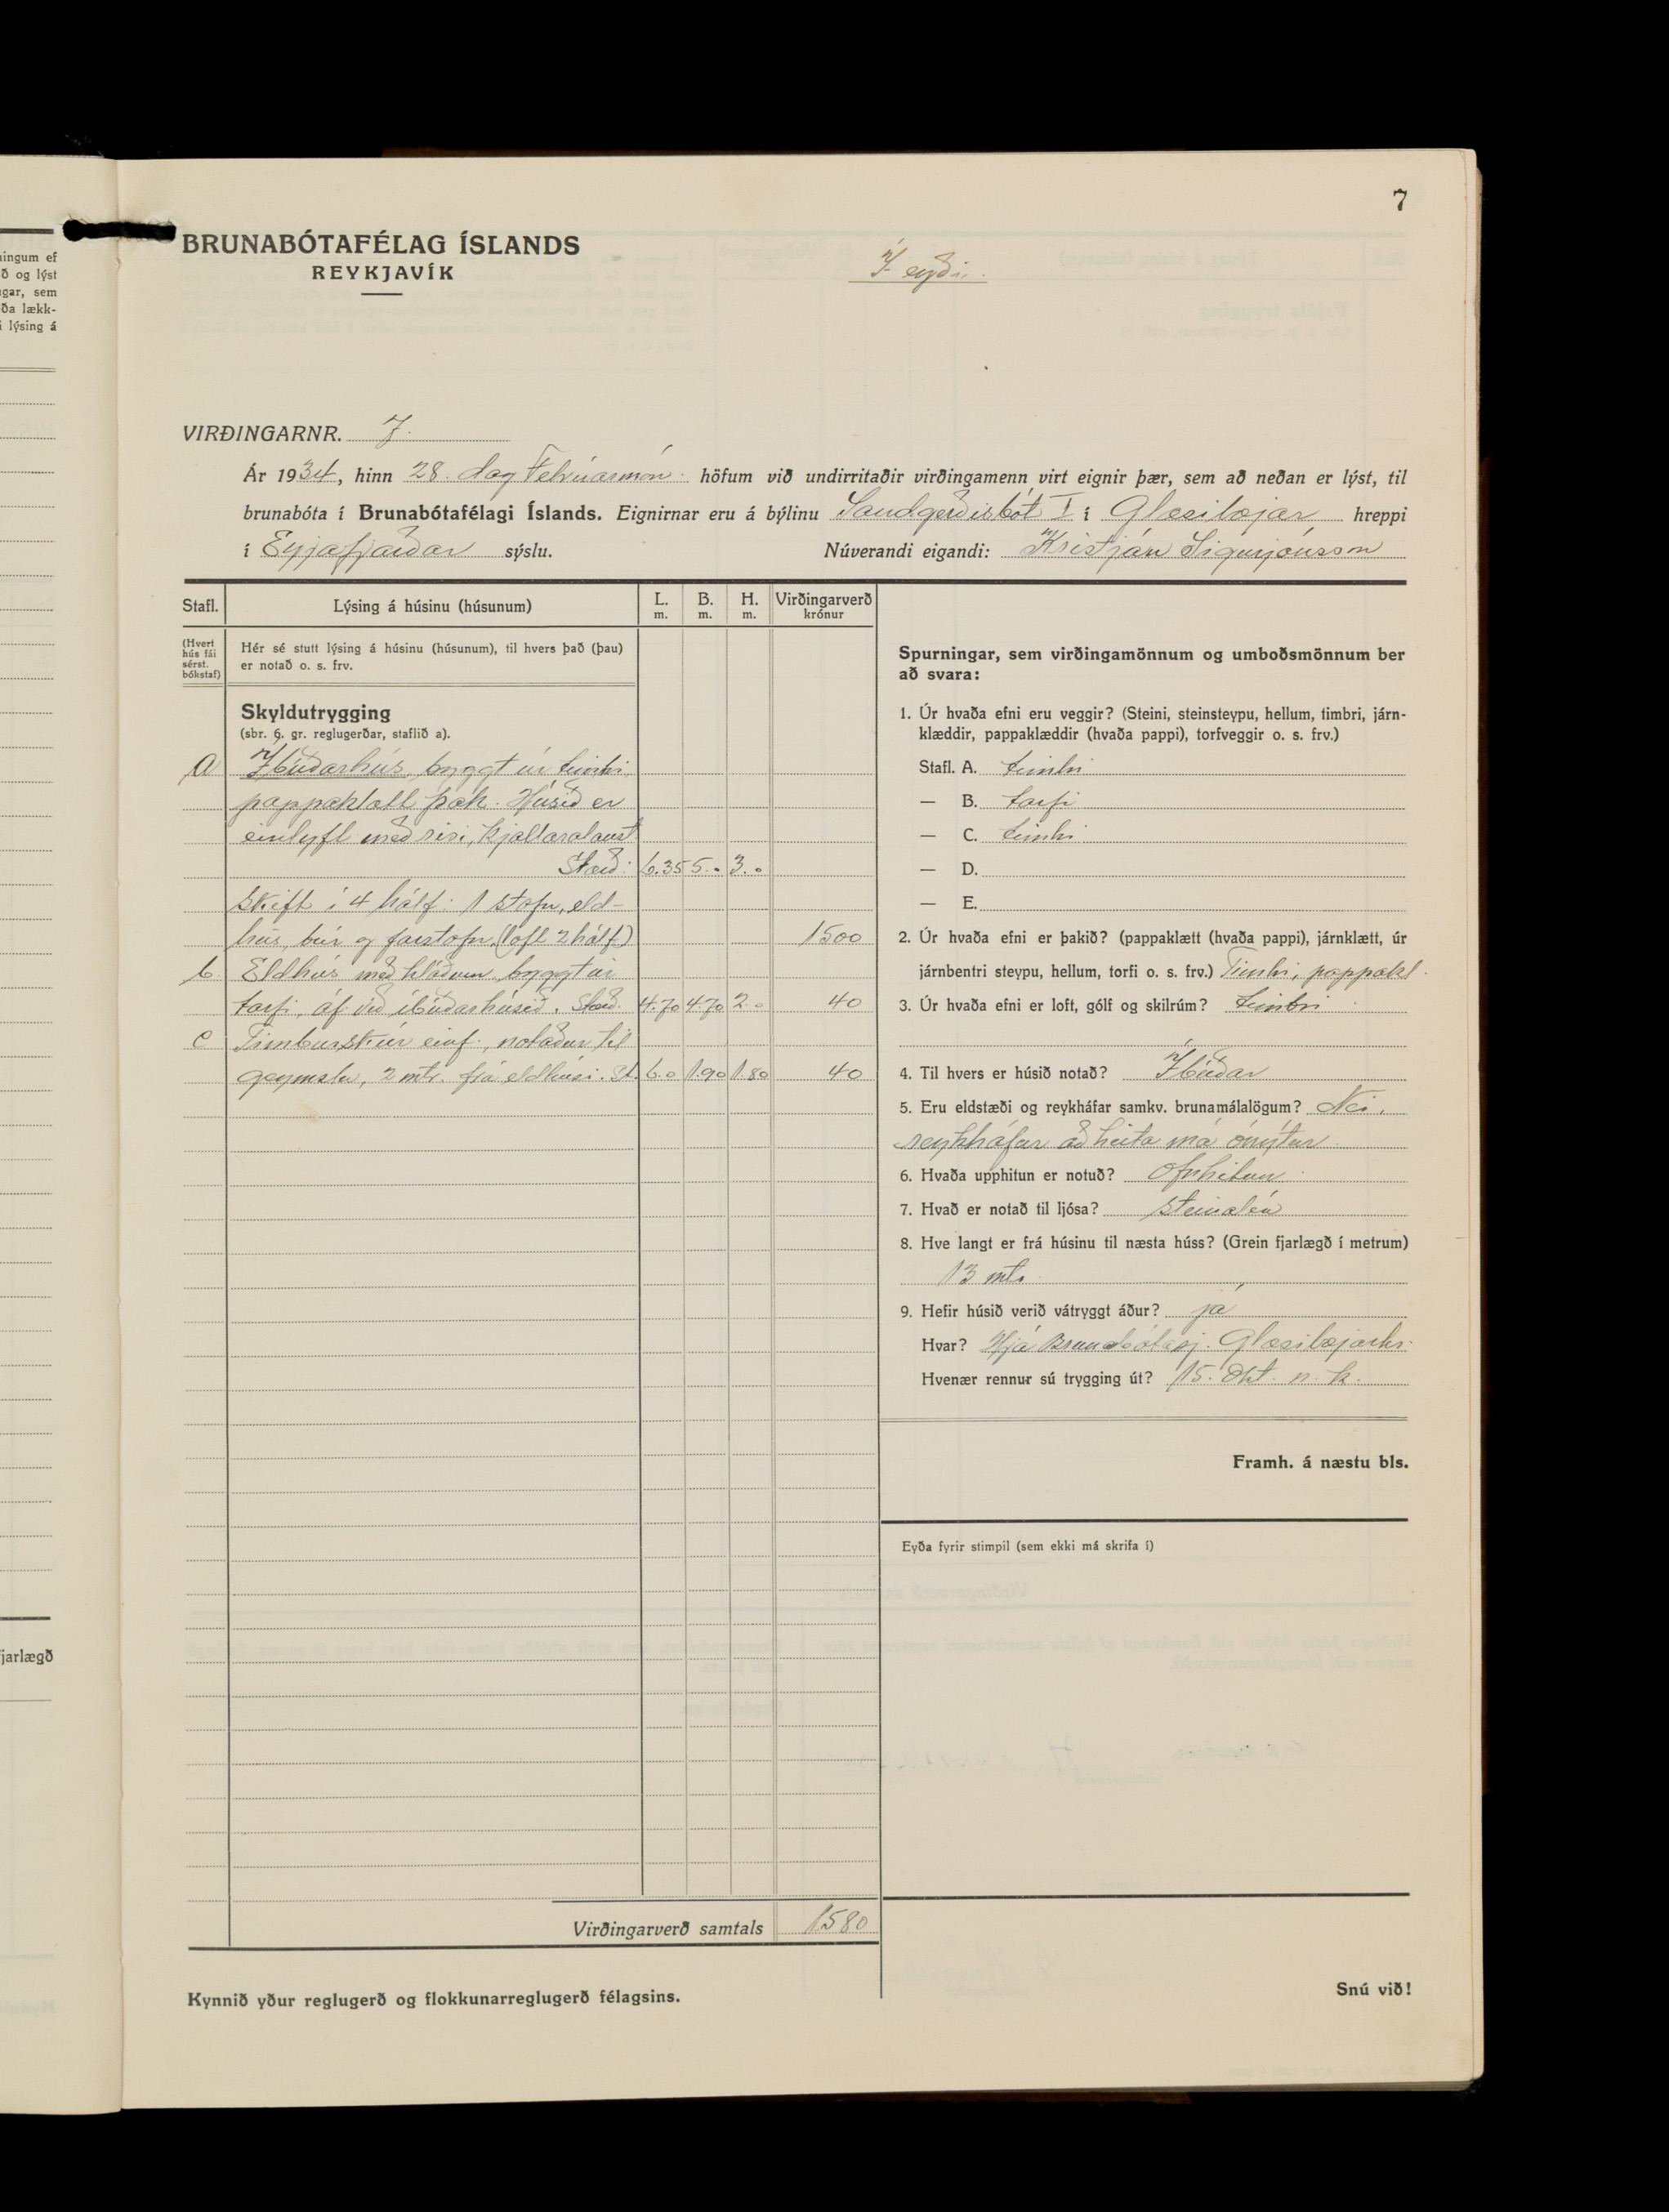 7
BRUNABÓTAFÉLAG ÍSLANDS
REYKJAVÍK
Í eyði.
VIRÐINGARNR. 7.
Ár 1934, hinn 28. dag Febrúarmán. höfum við undirritaðir virðingamenn virt eignir þær, sem að neðan er lýst, til
brunabóta í Brunabótafélagi Íslands. Eignirnar eru á býlinu Sandgerðisbót I í Glæsibæjar hreppi
í Eyjafjarðar sýslu. Núverandi eigandi: Kristján Sigurjónsson
Stafl. Lýsing á húsinu (húsunum) L. m. B. m. H. m. Virðingarverð krónur
(Hvert hús fái sérst. bókstaf) Hér sé stutt lýsing á húsinu (húsunum), til hvers það (þau)
er notað o. s. frv.
Skyldutrygging
(sbr. 6. gr. reglugerðar, staflið a).
a Íbúðarhús, byggt úr timbri,
pappaklætt þak. Húsið er
einlyft með risi, kjallaralaust
Stærð: 6.35 5.0 3.0
Skift í 4 hólf: 1 stofu, eld-
hús, búr og forstofu, (loft 2 hólf) 1500
b. Eldhús með hlóðum, byggt úr
torfi, áf. við íbúðarhúsið. Stærð. 4.70 4.70 2.0 40
c Timburskúr einf., notaður til
geymslu, 2 mtr. frá eldhúsi. St. 6.0 1.90 1.80 40
Virðingarverð samtals 1580
Kynnið yður reglugerð og flokkunarreglugerð félagsins.
Spurningar, sem virðingamönnum og umboðsmönnum ber
að svara:
1. Úr hvaða efni eru veggir? (Steini, steinsteypu, hellum, timbri, járn-
klæddir, pappaklæddir (hvaða pappi), torfveggir o. s. frv.)
Stafl. A. timbri
— B. torfi
— C. timbri
— D.
— E.
2. Úr hvaða efni er þakið? (pappaklætt (hvaða pappi), járnklætt, úr
járnbentri steypu, hellum, torfi o. s. frv.) Timbri, pappakl.
3. Úr hvaða efni er loft, gólf og skilrúm? timbri
4. Til hvers er húsið notað? Íbúðar
5. Eru eldstæði og reykháfar samkv. brunamálalögum? Nei,
reykháfur að heita má ónýtur
6. Hvaða upphitun er notuð? Ofnhitun
7. Hvað er notað til ljósa? steinolía
8. Hve langt er frá húsinu til næsta húss? (Grein fjarlægð í metrum)
13 mtr.
9. Hefir húsið verið vátryggt áður? já
Hvar? Hjá Brunabótasj. Glæsibæjarhr.
Hvenær rennur sú trygging út? 15. Okt. n. k.
Framh. á næstu bls.
Eyða fyrir stimpil (sem ekki má skrifa í)
Snú við!
ningum ef
ð og lýst
gar, sem
ða lækk-
i lýsing á
jarlægð